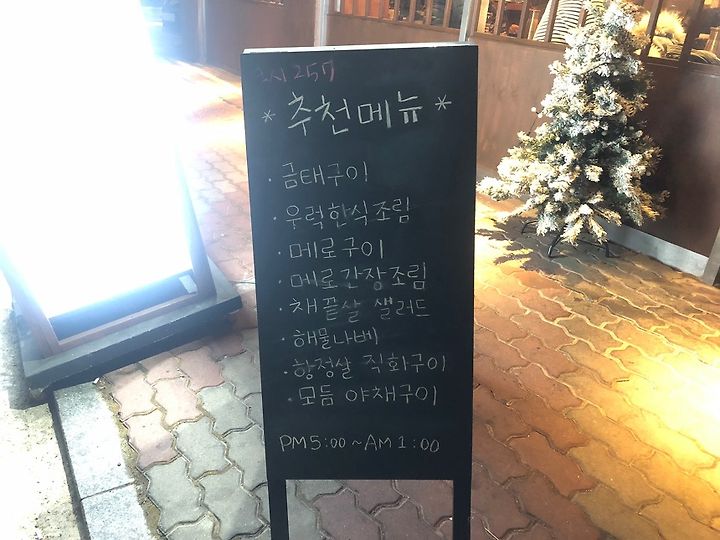 스시 257
* 추천메뉴 *
· 금태구이
· 우럭한식조림
· 메로구이
· 메로간장조림
· 채끝살 샐러드
· 해물나베
· 항정살 직화구이
· 모듬 야채구이
PM 5:00 ~ AM 1:00